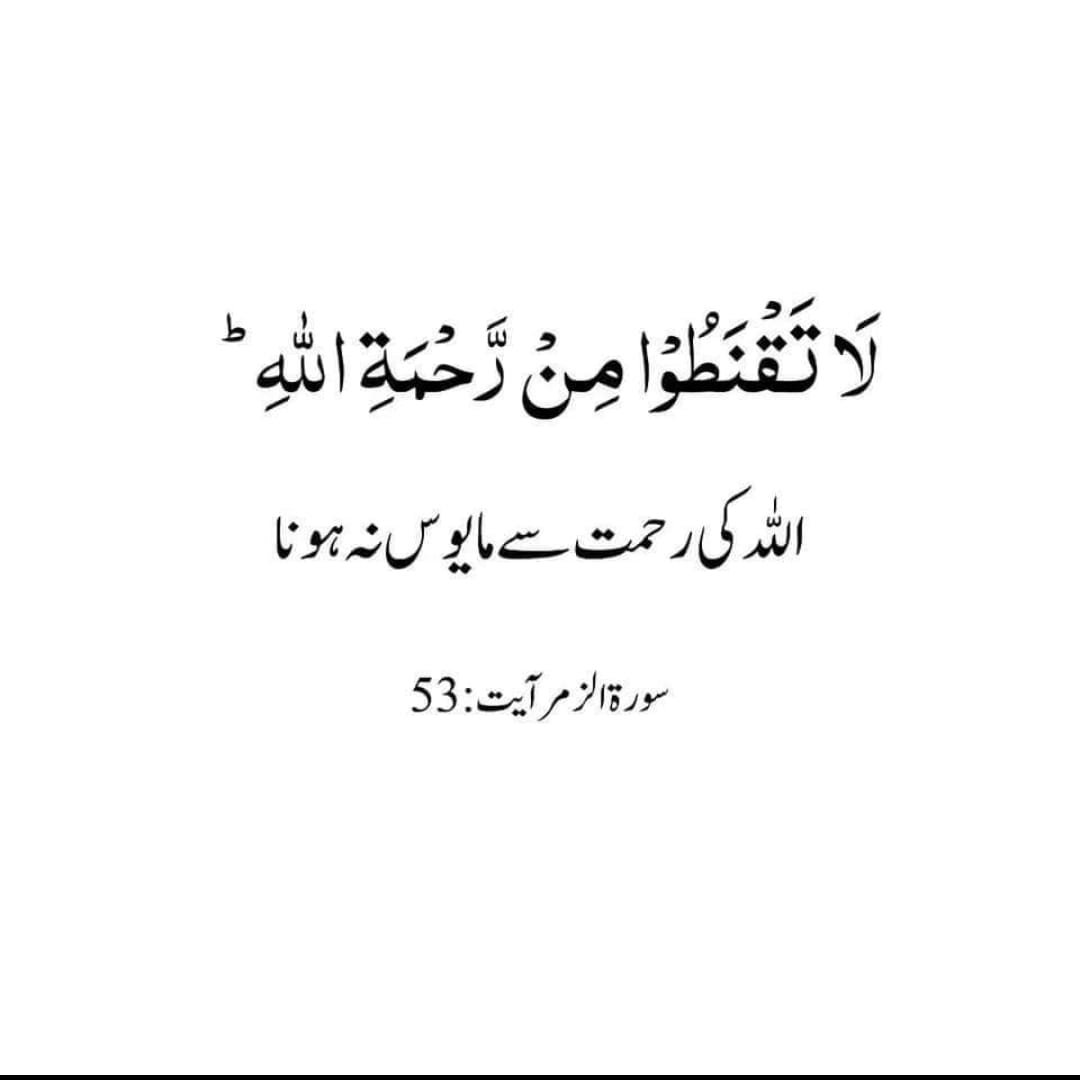 لَا تَقْنَطُوْا مِنْ رَّحْمَةِ اللّٰهِ ؕ
اللہ کی رحمت سے مایوس نہ ہونا
سورۃ الزمر آیت:53